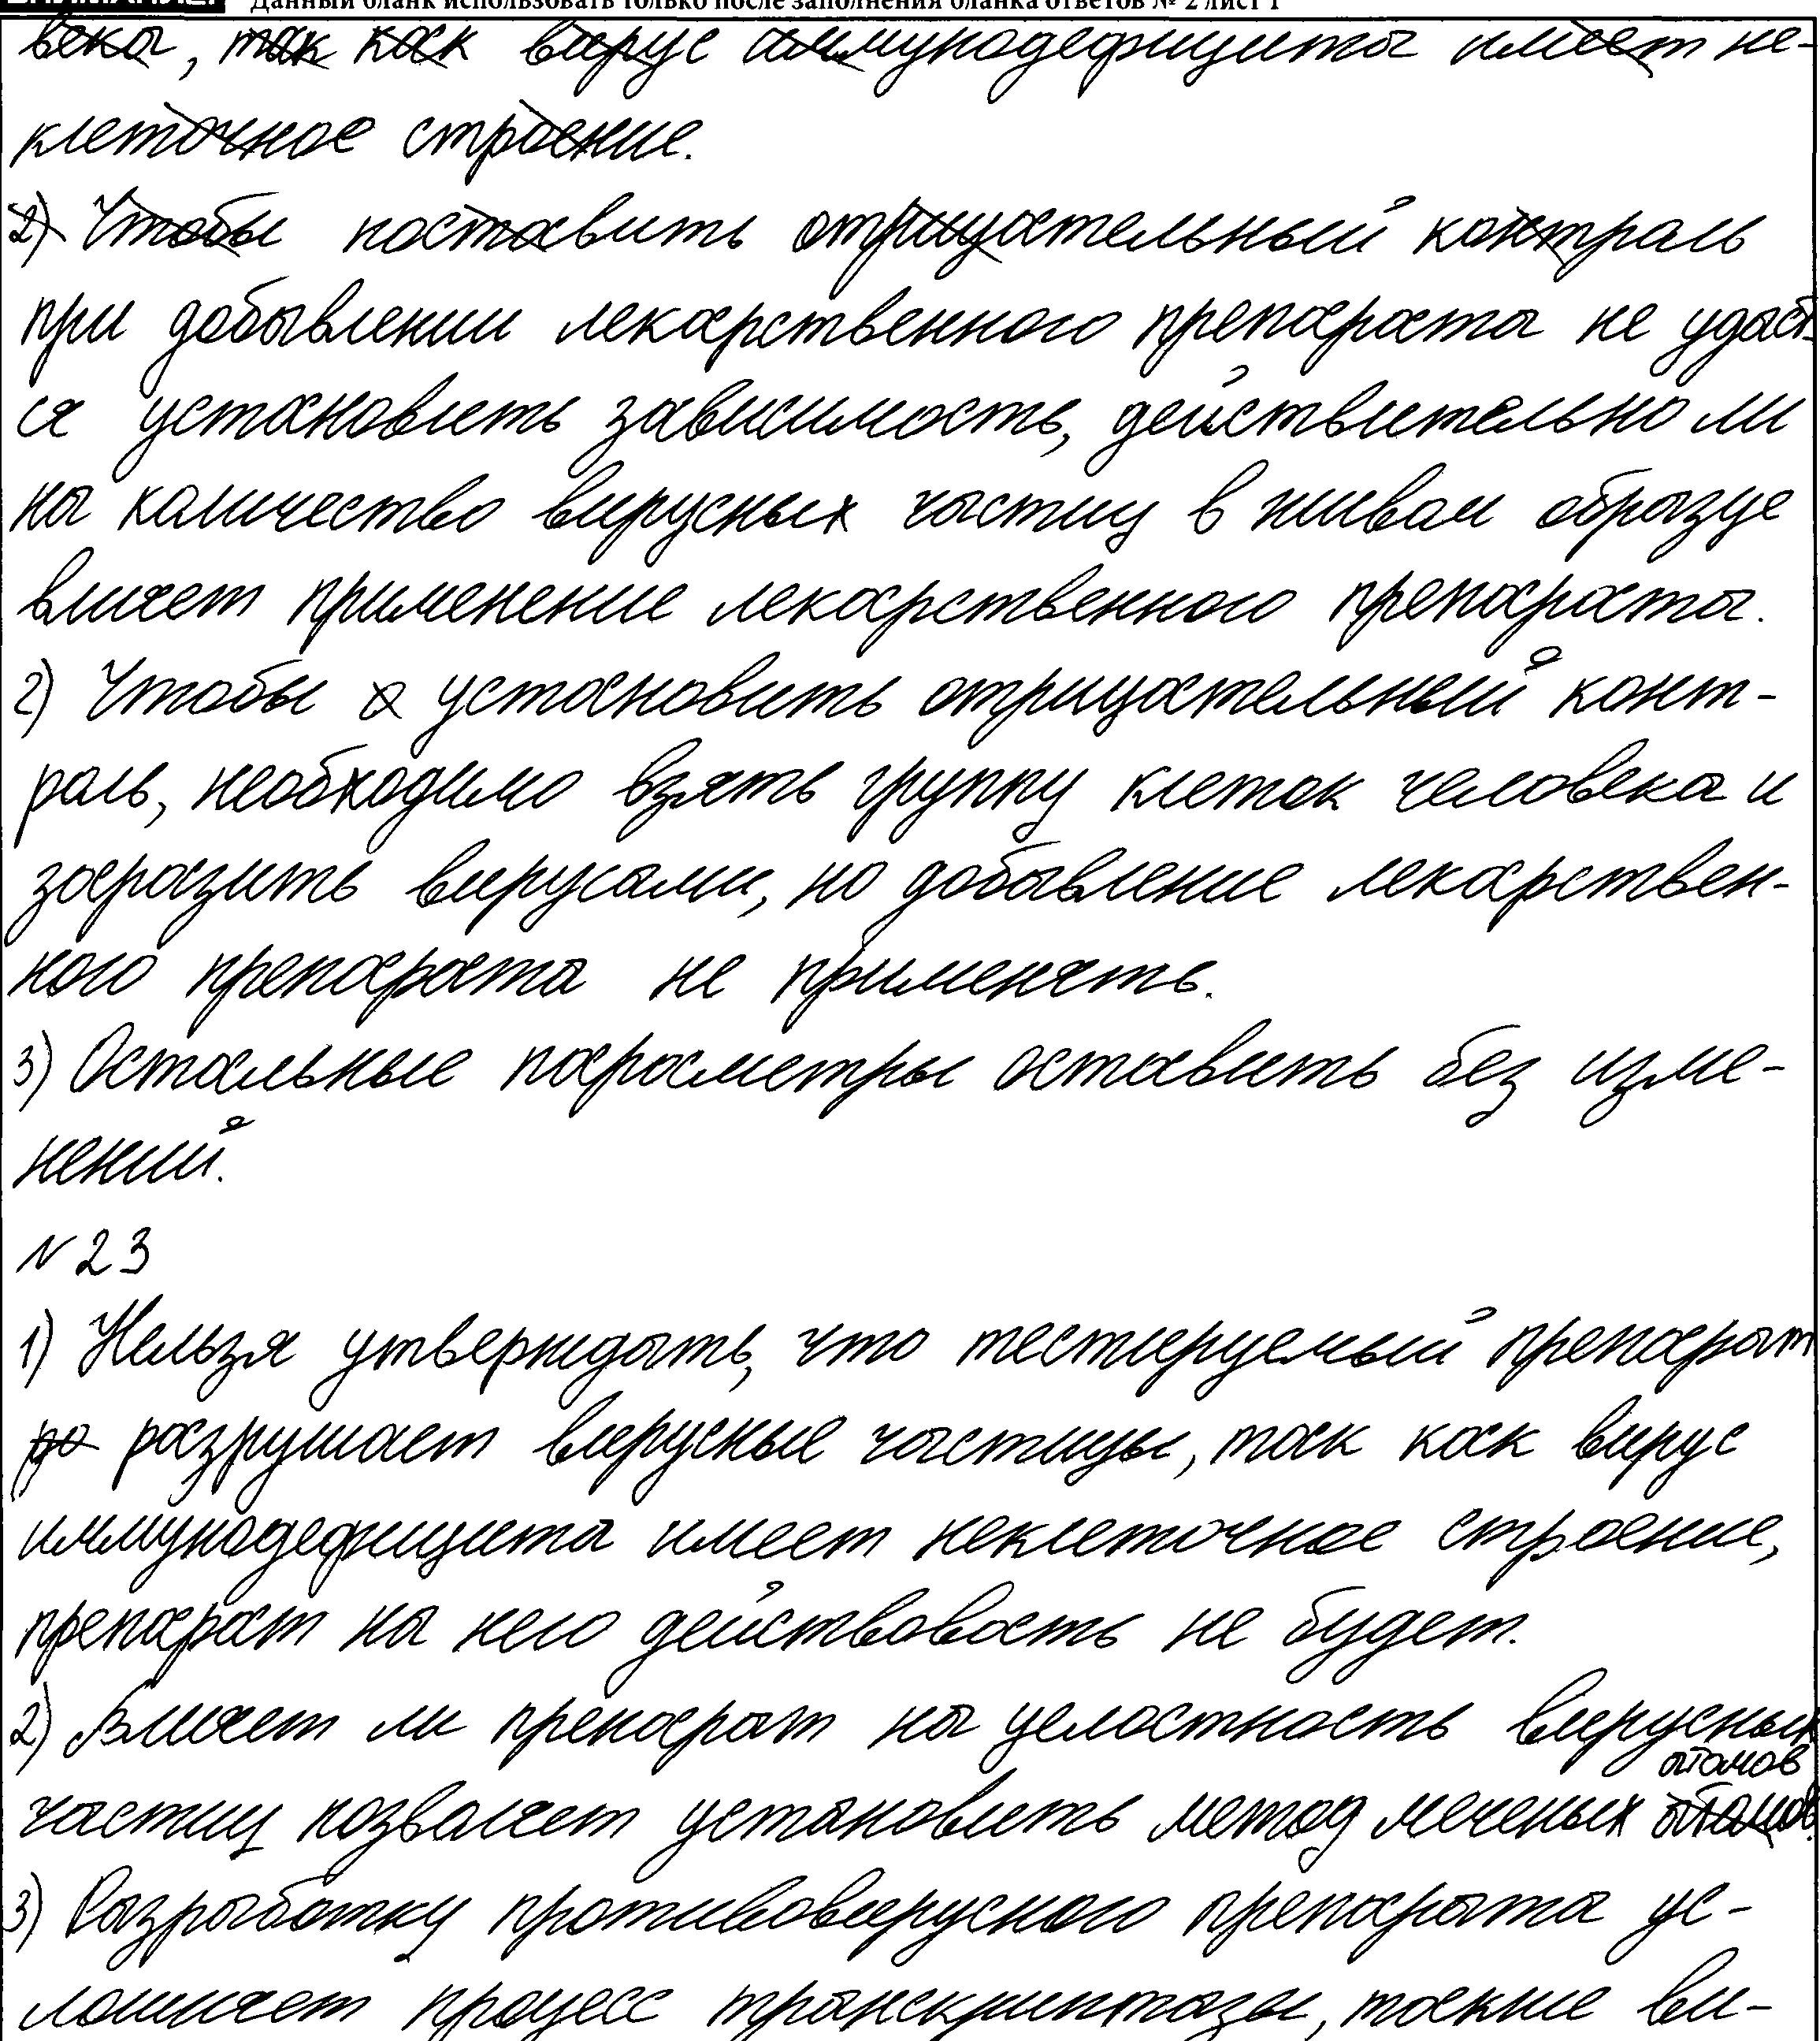 Данный бланк использовать только после заполнения бланка ответов № 2 лист 1
века, так как вирус иммунодефицита имеет не-
клеточное строение.
2) Чтобы поставить отрицательный контроль
при добавлении лекарственного препарата не удаёт-
ся установить зависимость, действительно ли
на количество вирусных частиц в живом образце
влияет применение лекарственного препарата.
2) Чтобы установить отрицательный конт-
роль, необходимо взять группу клеток человека и
заразить вирусами, но добавление лекарствен-
ного препарата не применять.
3) Остальные параметры оставить без изме-
нений.
N 23
1) Нельзя утверждать, что тестируемый препарат
ра разрушает вирусные частицы, так как вирус
иммунодефицита имеет неклеточное строение,
препарат на него действовать не будет.
2) Влияет ли препарат на целостность вирусных
атомов
частиц позволяет установить метод меченых
3) Разработку противовирусного препарата ус-
ложняет процесс транскриптазы, такие ви-